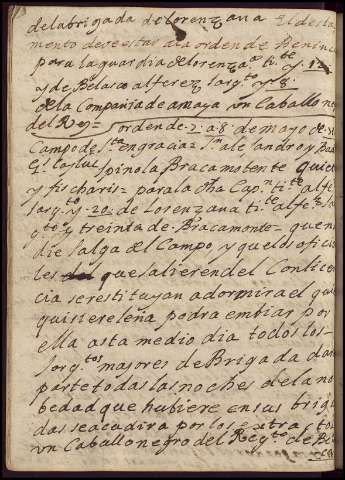 de la brigada de lorenzana El desta
mento deve estar ala orden de Beninc
para la guardia de lorenzana tite y 12
y de Belasco alferez sargto y 8
de la Compañia de amaya un Caballo ne
del Rey=
orden de 7 a 8 de mayo de
Campo de sta engracia= sn alejandro y Ba
spinola Bracamo tente quien
y fis charis= para la dha Capn tite alfe
sargto y 20 de Lorenzana tite alfez sa
gto y treinta de Bracamonte= que n
die salga del Campo y que los ofici
les que salieren del Con lice
cia se restituyan a dormir a el que
quisiere leña podra embiar por
ella asta medio dia todos los
sargtos majores de Brigada dan
parte todas las noches de la no
bedad que hubiere en sus briga
das se acudira por los extra ctos
un Caballo negro del Regto de Be